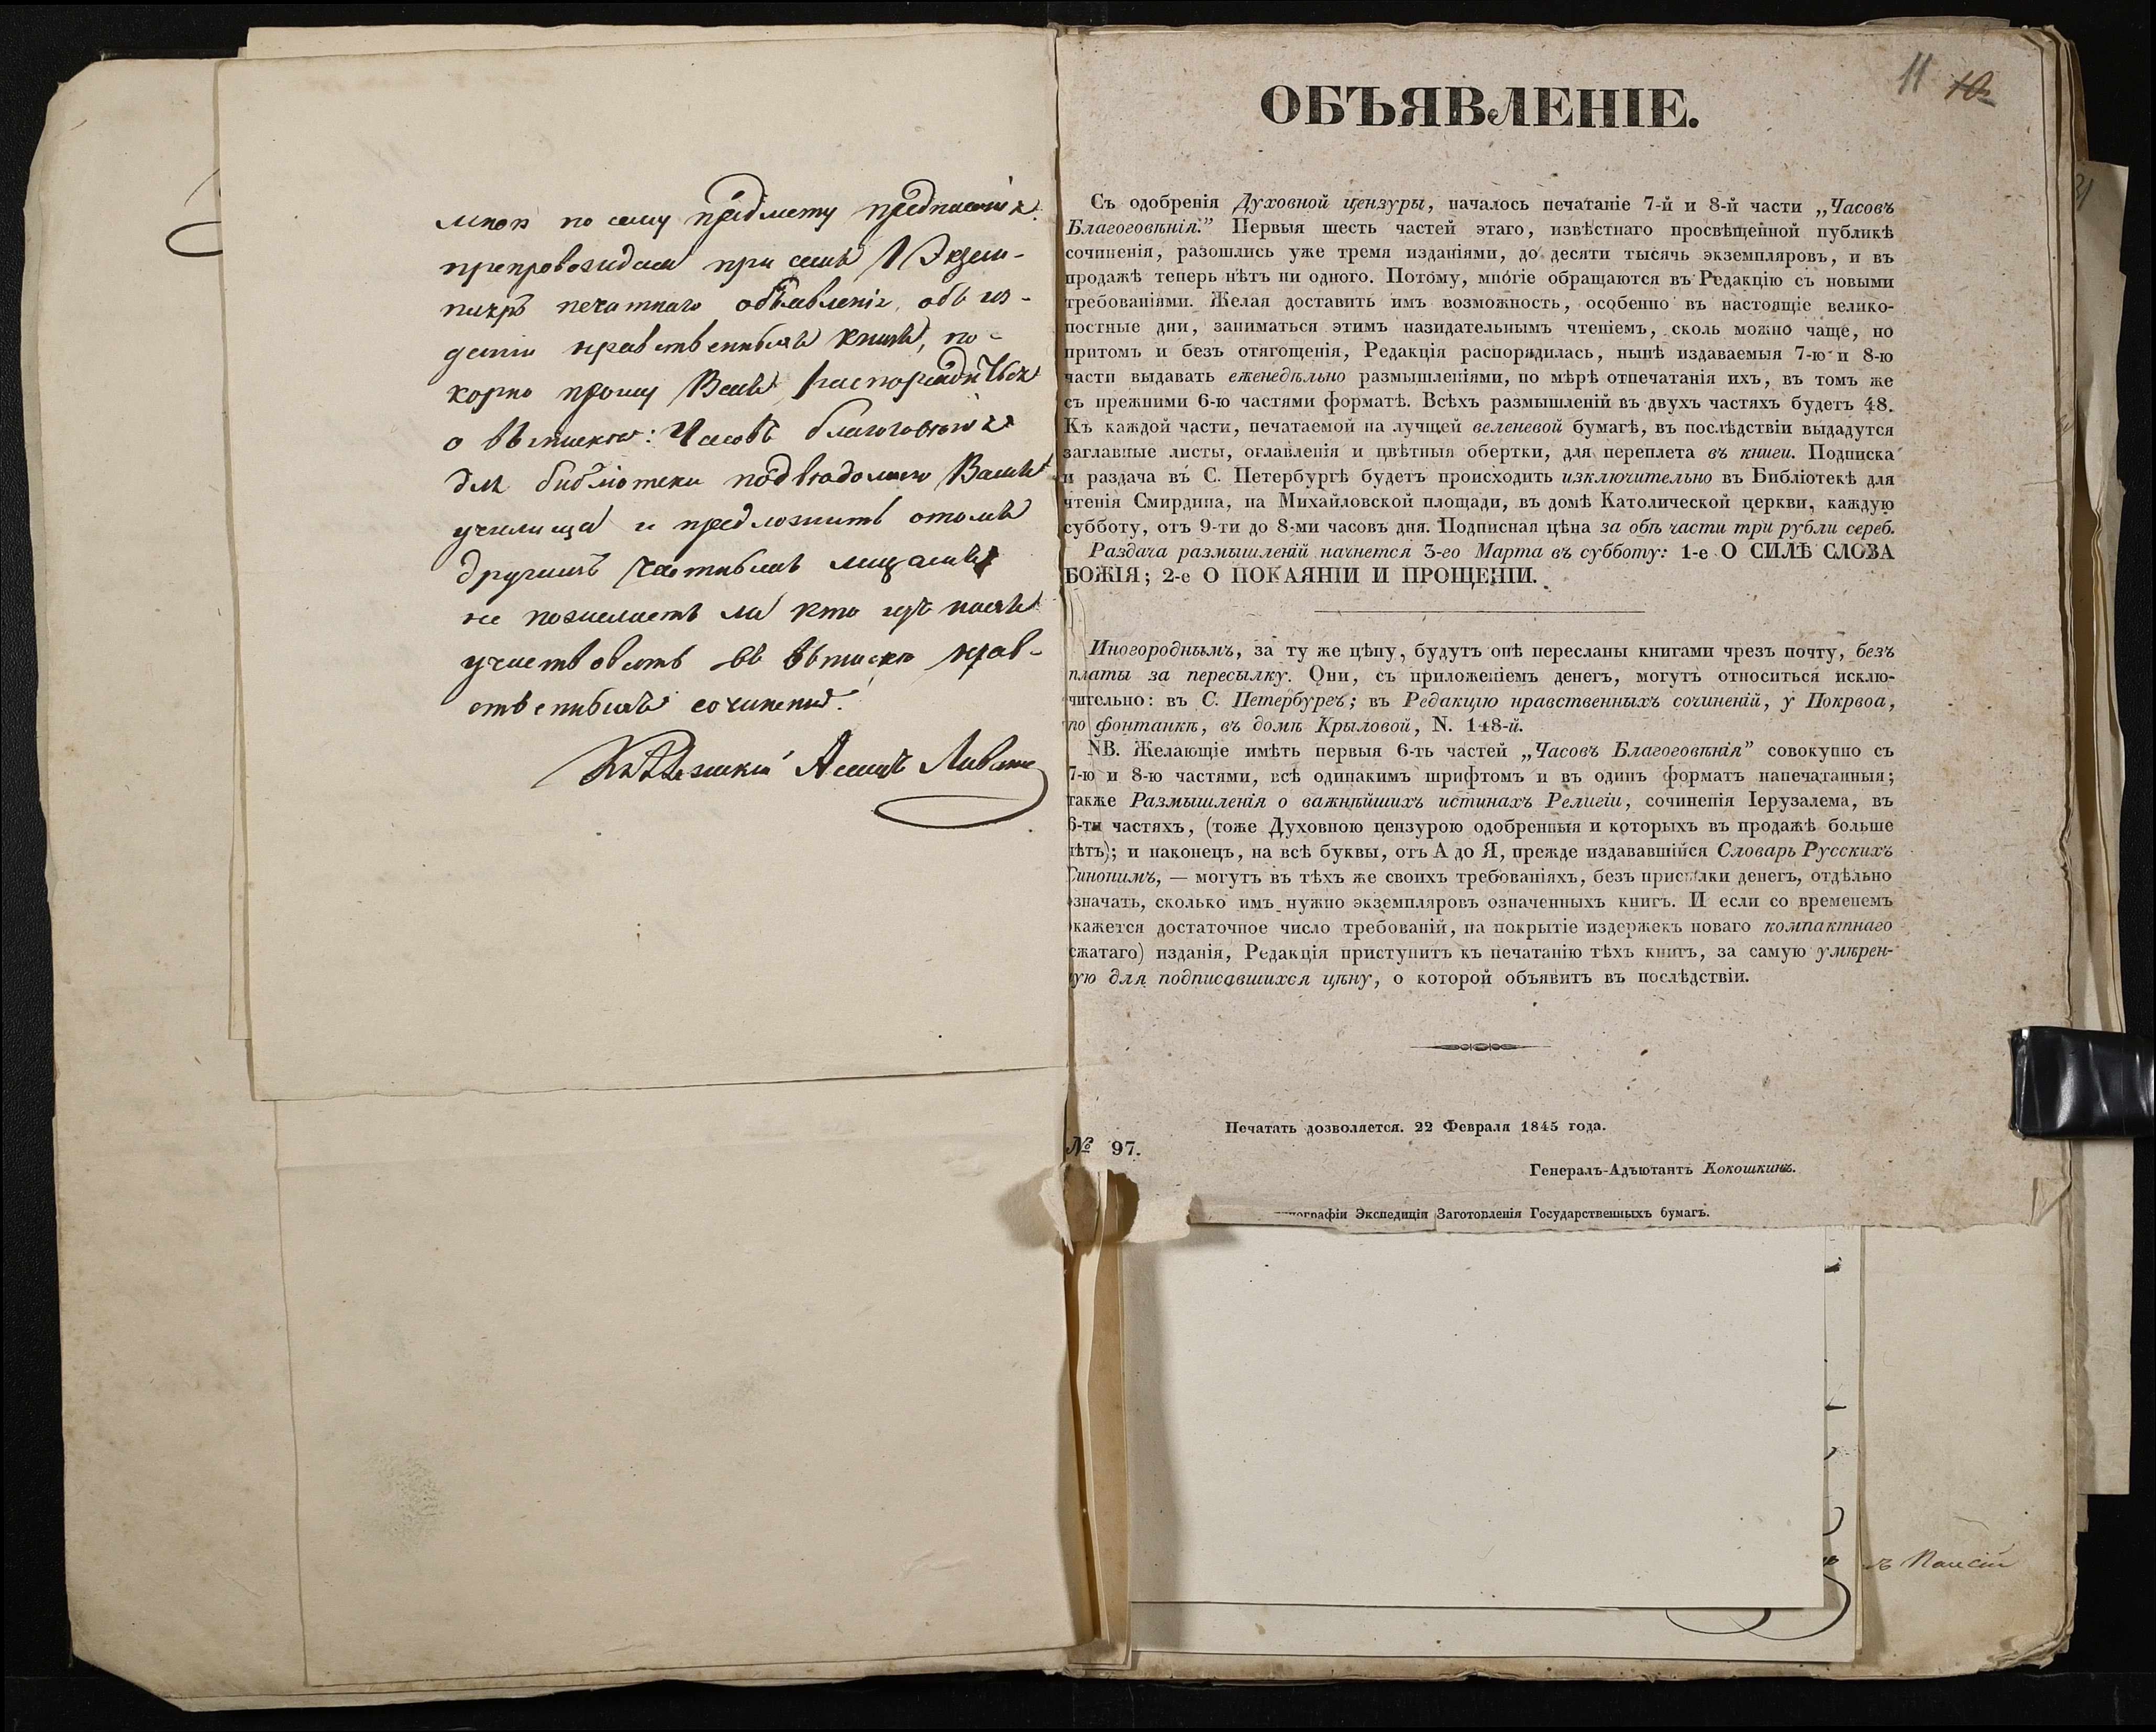 мною по сему предмету предписанія.
препровождая при семъ 1 Экзем-
пляръ печатнаго объявленія, объ из-
даніи нравственныхъ книгъ, по-
корно прошу Васъ распорядиться
о выпискѣ: Часовъ благоговѣнія
для библіотеки подвѣдомаго Вамъ
училища и предложить о томъ
другимъ частнымъ лицамъ,
не пожелаетъ ли кто изъ нихъ
участвовать въ выпискѣ нрав-
ственныхъ сочиненій.
11 10
ОБЪЯВЛЕНІЕ.
Съ одобренія Духовной цензуры, началось печатаніе 7-й и 8-й части „Часовъ
Благоговѣнія.” Первыя шесть частей этаго, извѣстнаго просвѣщенной публикѣ
сочиненія, разошлись уже тремя изданіями, до десяти тысячь экземпляровъ, и въ
продажѣ теперь нѣтъ ни одного. Потому, многіе обращаются въ Редакцію съ новыми
требованіями. Желая доставить имъ возможность, особенно въ настоящіе велико-
постные дни, заниматься этимъ назидательнымъ чтеніемъ, сколь можно чаще, но
притомъ и безъ отягощенія, Редакція распорядилась, нынѣ издаваемыя 7-ю и 8-ю
части выдавать еженедѣльно размышленіями, по мѣрѣ отпечатанія ихъ, въ томъ же
съ прежними 6-ю частями форматѣ. Всѣхъ размышленій въ двухъ частяхъ будетъ 48.
Къ каждой части, печатаемой на лучщей веленевой бумагѣ, въ послѣдствіи выдадутся
заглавные листы, оглавленія и цвѣтныя обертки, для переплета въ книги. Подписка
и раздача въ С. Петербургѣ будетъ происходить изключительно въ Библіотекѣ для
чтенія Смирдина, на Михайловской площади, въ домѣ Католической церкви, каждую
субботу, отъ 9-ти до 8-ми часовъ дня. Подписная цѣна за обѣ части три рубли сереб.
Раздача размышленій начнется 3-го Марта въ субботу: 1-е О СИЛѢ СЛОВА
БОЖІЯ; 2-е О ПОКАЯНІИ И ПРОЩЕНІИ.
Иногороднымъ, за ту же цѣну, будутъ онѣ пересланы книгами чрезъ почту, безъ
платы за пересылку. Они, съ приложеніемъ денегъ, могутъ относиться исклю-
чительно: въ С. Петербургъ; въ Редакцію нравственныхъ сочиненій, у Покрвоа,
по Фонтанкѣ, въ домѣ Крыловой, N. 148-й.
NB. Желающіе имѣть первыя 6-ть частей „Часовъ Благоговѣнія” совокупно съ
7-ю и 8-ю частями, всѣ одинакимъ шрифтомъ и въ одинъ форматъ напечатанныя;
также Размышленія о важнѣйшихъ истинахъ Религіи, сочиненія Іерузалема, въ
6-ти частяхъ, (тоже Духовною цензурою одобренныя и которыхъ въ продажѣ больше
нѣтъ); и наконецъ, на всѣ буквы, отъ А до Я, прежде издававшійся Словарь Русскихъ
Синонимъ, — могутъ въ тѣхъ же своихъ требованіяхъ, безъ присылки денегъ, отдѣльно
означать, сколько имъ нужно экземпляровъ означенныхъ книгъ. И если со временемъ
окажется достаточное число требованій, на покрытіе издержекъ новаго компактнаго
(сжатаго) изданія, Редакція приступитъ къ печатанію тѣхъ книгъ, за самую умѣрен-
ную для подписавшихся цѣну, о которой объявитъ въ послѣдствіи.
Печатать дозволяется. 22 Февраля 1845 года.
№ 97.
Генералъ-Адъютантъ Кокошкинъ.
типографіи Экспедиціи Заготовленія Государственныхъ бумагъ.